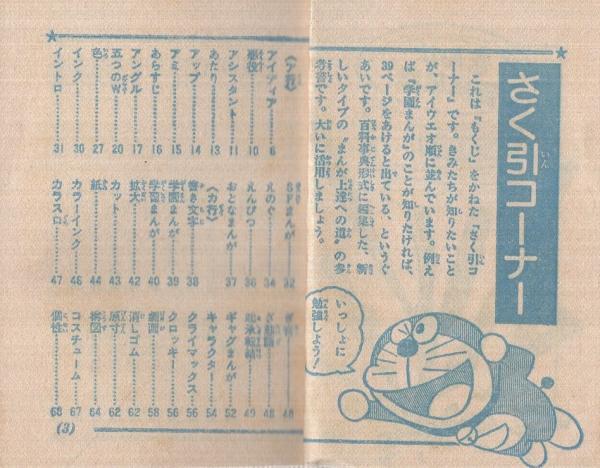 さく引コーナー
これは『もくじ』をかねた『さく引コ
ーナー』です。きみたちが知りたいこと
が、アイウエオ順に並んでいます。例え
ば、『学園まんが』のことが知りたければ、
39ページをあけると出ている、というぐ
あいです。百科事典形式に編集した、新
しいタイプの〝まんが上達への道〟の参
考書です。大いに活用しましょう。
いっしょに
勉強しよう!
〈ア行〉
アイディア……6
悪役……10
アシスタント……11
あたり……13
アップ……14
アミ……15
あらすじ……16
アングル……17
五つのW……20
色……27
インク……30
イントロ……31
SFまんが……32
えのぐ……34
えんぴつ……36
おとなまんが……37
〈カ行〉
書き文字……38
学園まんが……39
学習まんが……40
拡大……42
カット……43
紙……44
カラーインク……46
カラスロ……47
48
48
起承転結……49
ギャグまんが……52
キャラクター……54
クライマックス……56
クロッキー……56
劇画……58
消しゴム……62
原寸……62
構図……64
コスチューム……67
個性……68
(3)